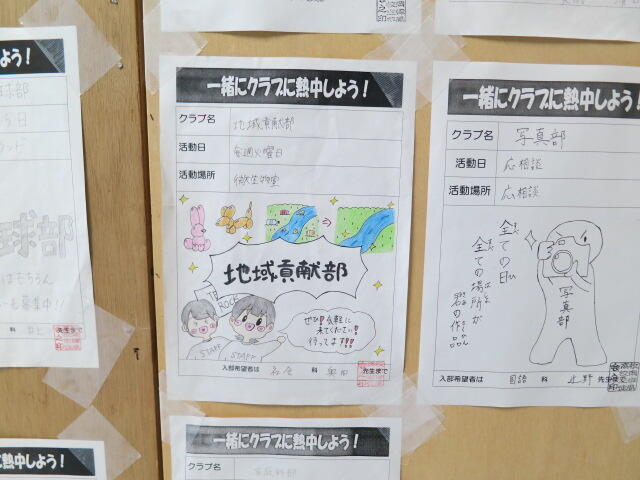 よう!
一緒にクラブに熱中しよう!
クラブ名 地域貢献部
活動日 毎週火曜日
活動場所 微生物室
地域貢献部
STAFF
STAFF
ぜひ!気軽に
来てください!
待ってます!!
入部希望者は 科 奥田 先生まで
一緒にクラブに熱中しよう!
クラブ名 写真部
活動日 応相談
活動場所 応相談
全ての日
全ての場所が
君の作品
写真部
入部希望者は 国語 科 先生
球部
はもちろん
も募集中!!
科 井上 先生まで
に熱中しよう!
一緒にクラブに熱中しよう!
クラブ名 家庭科部